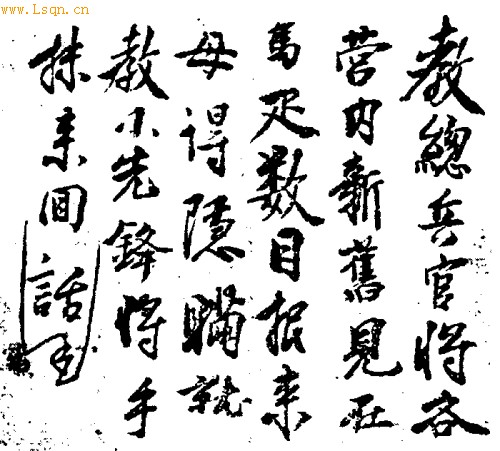 www.Lsqn.cn
教總兵官將各
营内新舊見在
馬疋数目报来
毋得隱瞞就
教小先鋒將手
抹来囬話